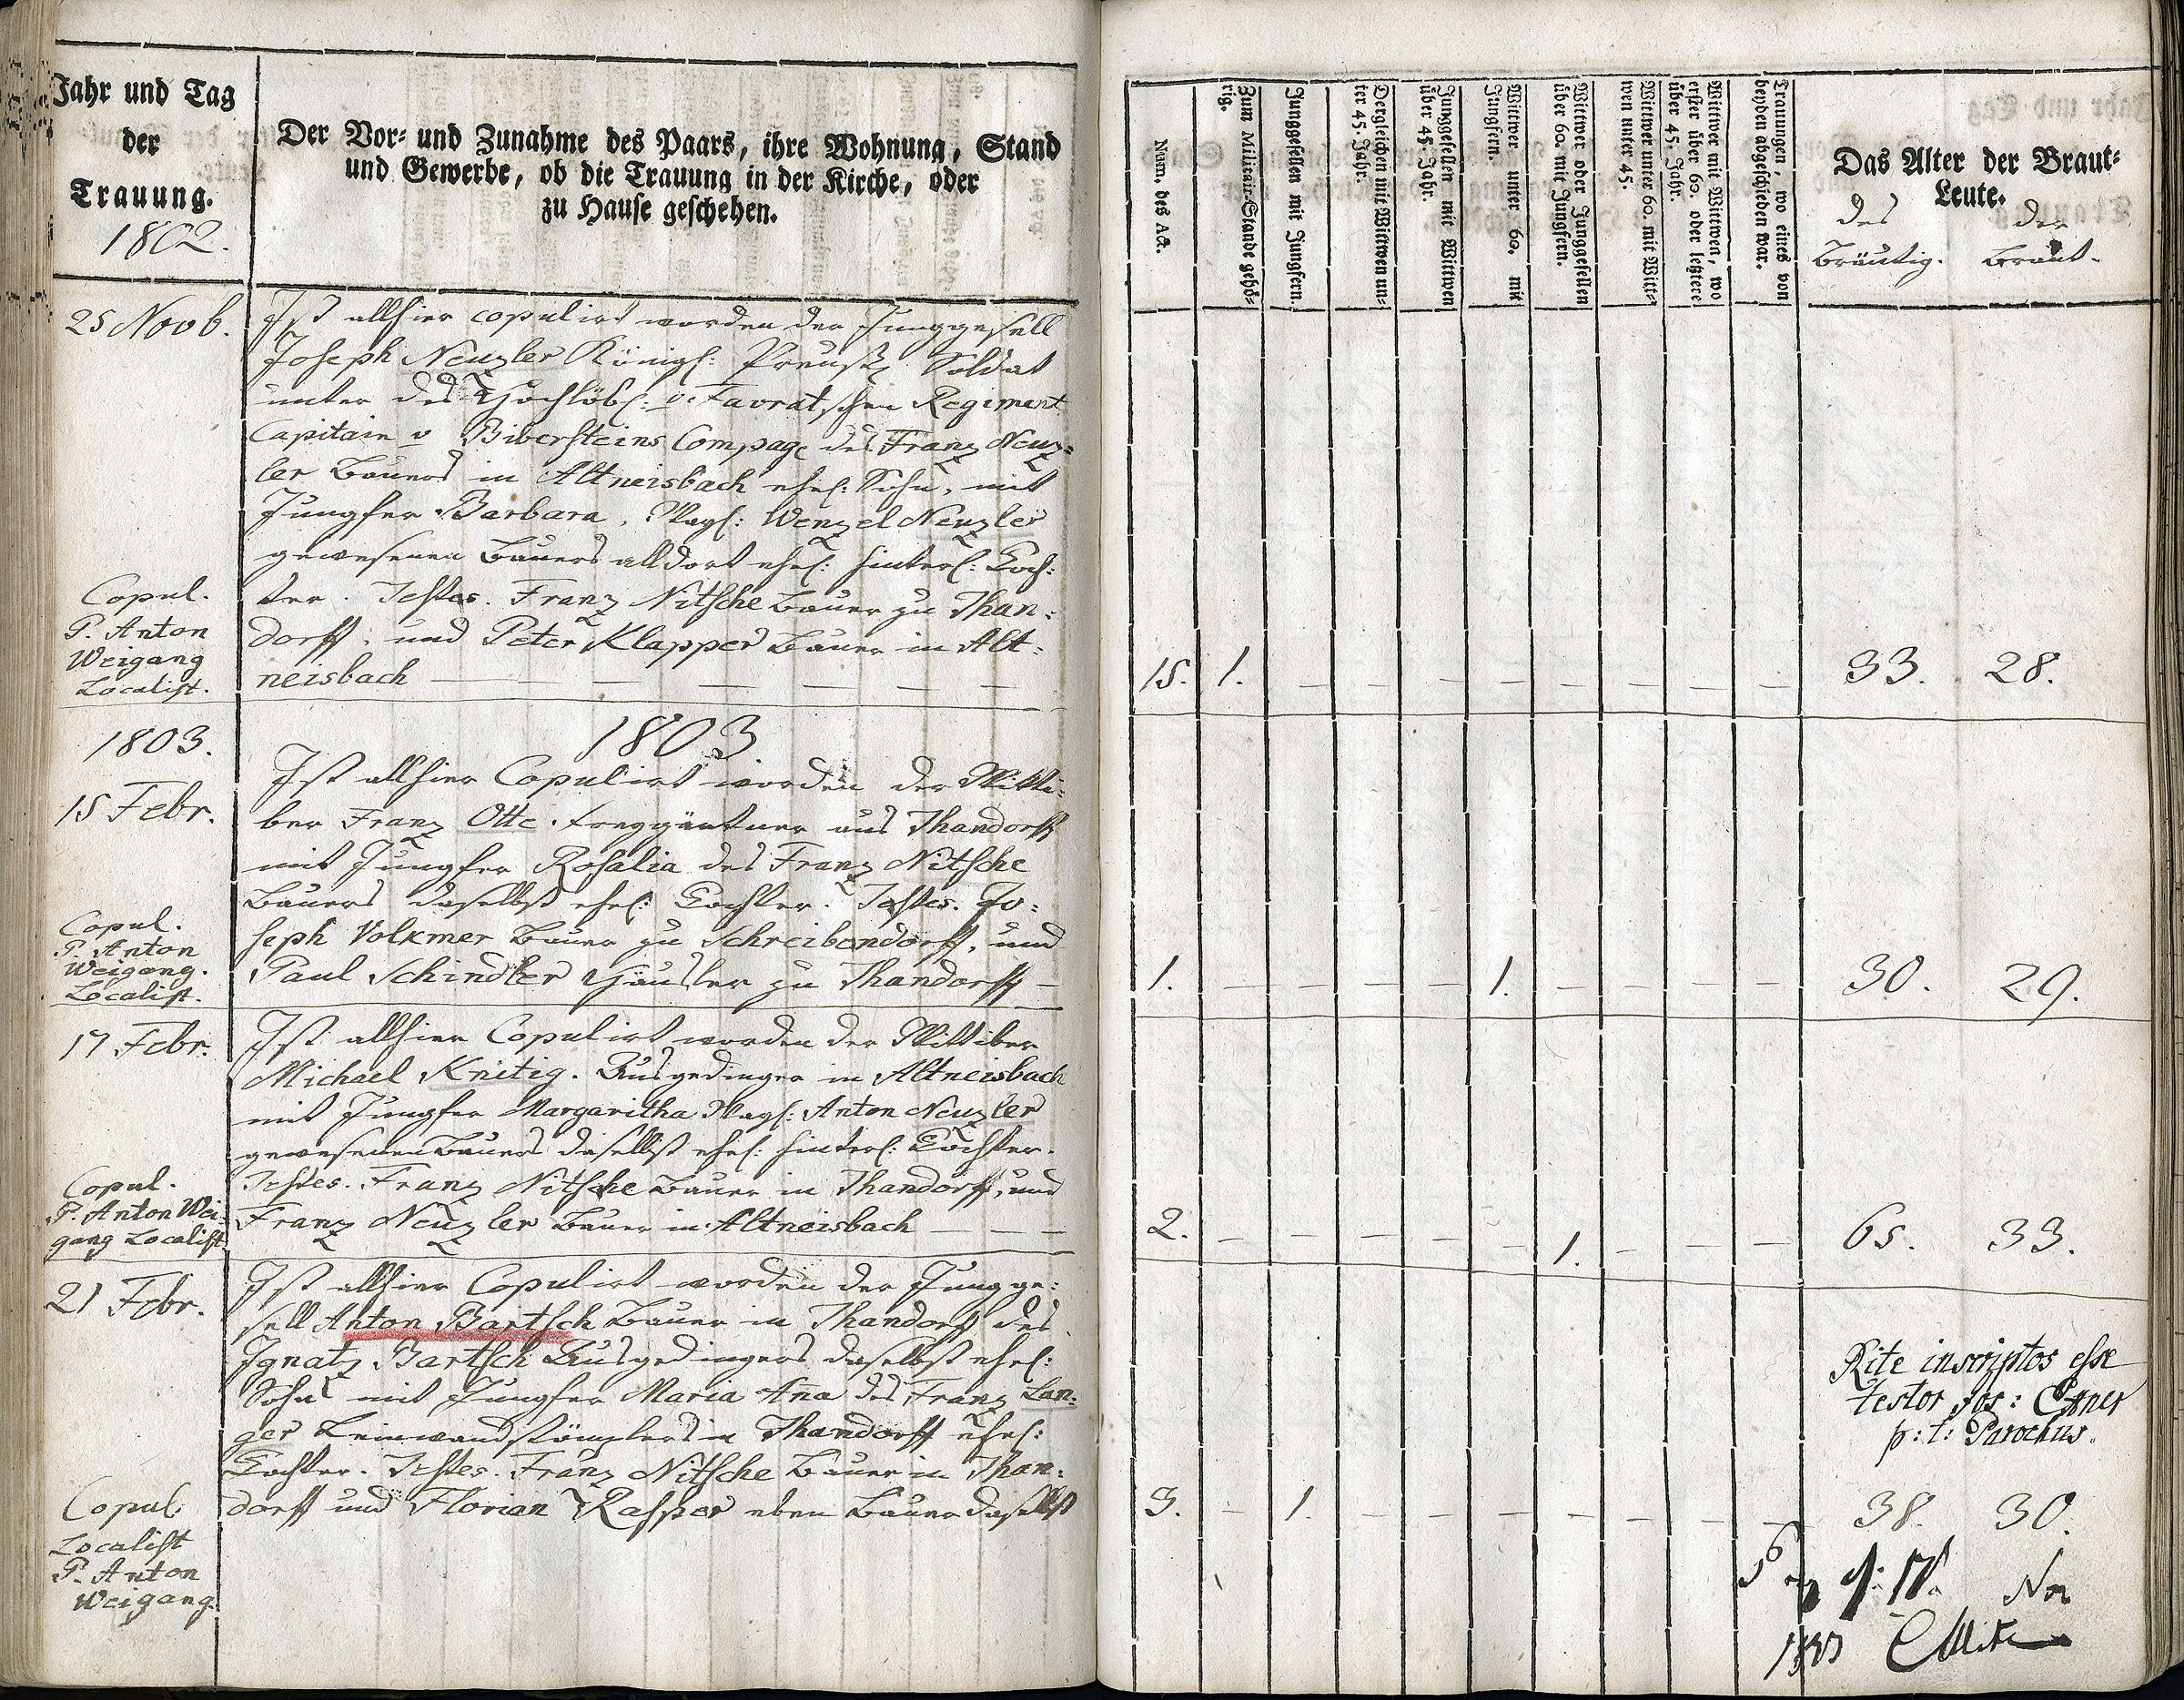 Jahr und Tag
der
Trauung.
1802.
Der Vor- und Zunahme des Paars, ihre Wohnung, Stand
und Gewerbe, ob die Trauung in der Kirche, oder
zu Hause geschehen.
25 Novb.
Ist allhier copulirt worden der Junggesell
Joseph Neuzler Königl: Preuß. Soldat
unter des Hochlöbl: v. Favratschen Regiment
Capitain v Bibersteins Compag. des Franz Neuz-
ler Bauers in Altneisbach ehel: Sohn, mit
Jungfer Barbara, Wenzel Neuzler
gewesenen Bauers alldort ehel: hinterl: Toch:
ter. Testes. Franz Nitsche Bauer zu Than:
dorff, und Peter Klapper Bauer in Alt:
neisbach
Copul.
P. Anton
Weigang
Localist.
1803.
1803
15 Febr.
Ist allhier Copulirt worden der Witti:
ber Franz Otte. freygärtner aus Thandorff
mit Jungfer Rosalia des Franz Nitsche
Bauers daselbst ehel: Tochter. Testes. Jo:
seph Volkmer Bauer zu Schreibendorff, und
Paul Schindler Häusler zu Thandorff
Copul.
P. Anton
Weigang.
Localist.
17 Febr.
Ist allhier Copulirt worden der Wittiber
Michael Knitig. Ausgedinger in Altneisbach
mit Jungfer Margaritha Anton Neuzler
gewesenen Bauers daselbst ehel: hinterl: Tochter.
Testes. Franz Nitsche Bauer in Thandorff, und
Franz Neuzler Bauer in Altneisbach
Copul.
P. Anton Wei:
gang Localist
21 Febr.
Ist allhier Copulirt worden der Jungge:
sell Anton Bartsch Bauer in Thandorff des
Ignatz Bartsch Ausgedingers daselbst ehel:
Sohn mit Jungfer Maria Ana des Franz Lan:
ger in Thandorff ehel:
Tochter. Testes. Franz Nitsche Bauer in Than:
dorff und Florian Rasper eben Bauer daselbst
Copul:
Localist
P. Anton
Weigang.
Num. des Act.
Zum Militair-Stande gehö-
rig.
Junggesellen mit Jungfern.
Dergleichen mit Wittwen un-
ter 45. Jahr.
Junggesellen mit Wittwen
über 45. Jahr.
Wittwer unter 60. mit
Jungfern.
Wittwer oder Junggesellen
über 60. mit Jungfern.
Wittwer unter 60. mit Witt-
wen unter 45.
Wittwer mit Wittwen, wo
erster über 60. oder letztere
über 45. Jahr.
Trauungen, wo eines von
beyden abgeschieden war.
Das Alter der Braut-
Leute.
des
Bräutig.
der
Braut.
15. 1. – – – – – – – – 33. 28.
1. – – – – 1. – – – – 30. 29.
2. – – – – – 1. – – – 65. 33.
Rite inscriptos esse
testor Jos:
p: t: Parochus.
3. – 1. – – – – – – – 38. 30.